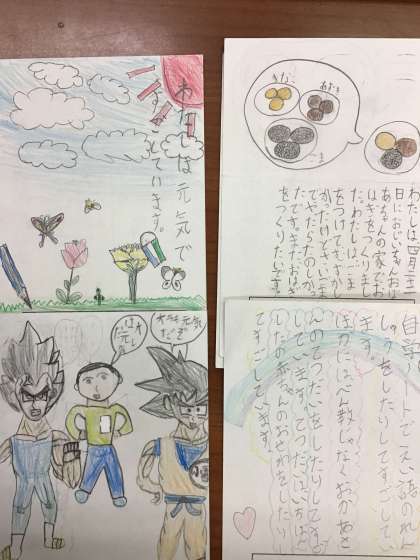 わたしは元気で
すごしています。
きなこ
あずき
ごま
わたしは四月二十二
日におじいちゃんおば
あちゃんの家でおは
ぎをつくりま
たわたしはごま
をつけてむずかし
かったけどきれいに
できたらたのしかっ
たです。またおはぎ
をつくりたいです。
オレ
は
元気
オラも元気
だぞ
トでえい語のれん
しゅうをしたりしてすごしてい
ます。
ほかにはべん強しなくおかあさ
んのてつだいをしたりしてすご
しています。てつだいいがいは
したの赤ちゃんのおせわをしたり
してすごしています。